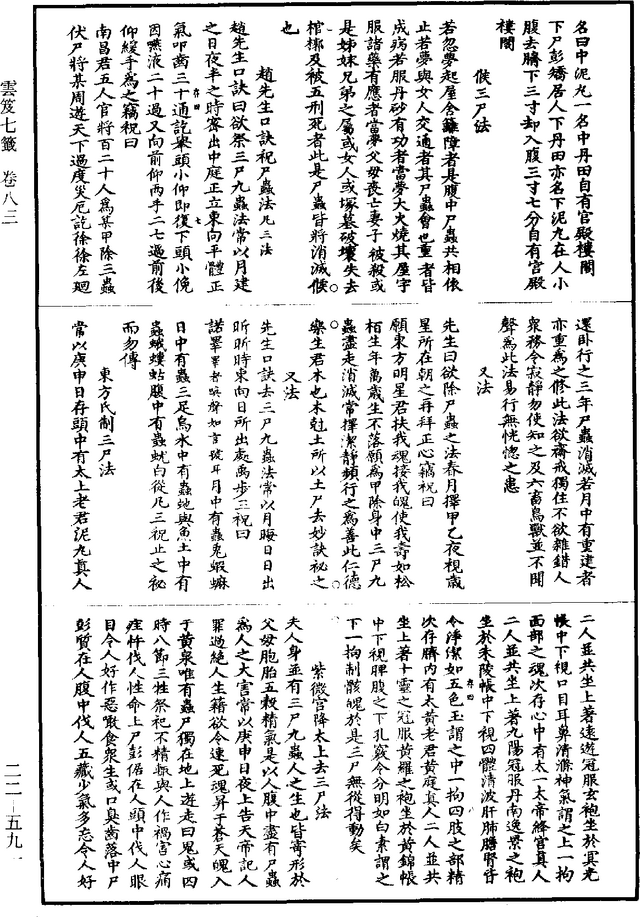 雲笈七籤　卷八三
二二－五九一
名曰中泥丸一名中丹田自有官殿樓閣
下尸彭矯居人下丹田亦名下泥丸在人小
腹去臍下三寸却入腹三寸七分自有宮殿
樓閣
候三尸法
若忽夢起屋舍籬障者是腹中尸蟲共相依
止若夢與女人交通者其尸蟲會也重者皆
成病若服丹砂有功者當夢大火燒其屋宇
服諸藥有應者當夢父母喪亡妻子被殺或
是姊妹兄弟之屬或女人或塚墓破壞失去
棺槨及被五刑死者此是尸蟲皆將消滅候
也
趙先生口訣祝尸蟲法凡三法
趙先生口訣曰欲祭三尸九蟲法常以月建
之日夜半之時密出中庭正立東向平體正
氣叩齒三十通訖舉頭小仰即復下頭小俛
因嚥液二十過又向前仰兩手二七過前後
仰緩手為之竊祝曰
南昌君五人官將百二十人為某甲除三蟲
伏尸將某周遊天下過度災厄訖徐徐左廻
還卧行之三年尸蟲消滅若月中有重建者
亦重為之修此法欲齋戒獨住不欲雜錯人
衆務令寂靜勿使知之及六畜鳥獸並不聞
聲為此法易行無恍惚之患
又法
先生曰欲除尸蟲之法春月擇甲乙夜視歲
星所在朝之再拜正心竊祝曰
願東方明星君扶我魂接我魄使我壽如松
栢生年萬歲生不落願為甲除身中三尸九
蟲盡走消滅常擇潔靜頻行之為善此仁德
樂生君木也木剋土所以土尸去妙訣祕之
又法
先生口訣去三尸九蟲法常以月晦日日出
昕昕時東向日所出處禹步三祝曰
諾睪睪者嘷聲如言㨗耳月中有蟲兎蝦蟆
日中有蟲三足烏水中有蟲虵與魚土中有
蟲蛾螻蛄腹中有蟲蚘白從凡三祝止之祕
而勿傳
東方氏制三尸法
常以庚申日存頭中有太上老君泥丸眞人
二人並共坐上著遠遊冠服玄袍坐於冥光
帳中下視口目耳鼻清滌神氣謂之上一拘
面部之魂次存心中有太一太帝絳宮眞人
二人並共坐上著九陽冠服丹南逸景之袍
坐於朱陵帳中下視四體清波肝肺膽腎皆
令淨潔如五色玉謂之中一拘四肢之部精
次存臍內有太黃老君黃庭眞人二人並共
坐上著十靈之冠服黃羅之袍坐於黃錦帳
中下視脾腹之下孔竅令分明如白素謂之
下一拘制骸魄於是三尸無從得動矣
紫微宮降太上去三尸法
夫人身並有三尸九蟲人之生也皆寄形於
父母胞胎五穀精氣是以人腹中盡有尸蟲
為人之大害常以庚申日夜上告天帝記人
罪過絕人生籍欲令速死魂昇于蒼天魄入
于黃泉唯有蟲尸獨在地上遊走曰鬼或四
時八節三牲祭祀不精頓與人作禍害心痛
疰忤伐人性命上尸彭倨在人頭中伐人眼
目令人好作惡噉食衆生或口臭齒落中尸
彭質在人腹中伐人五藏少氣多忘令人好